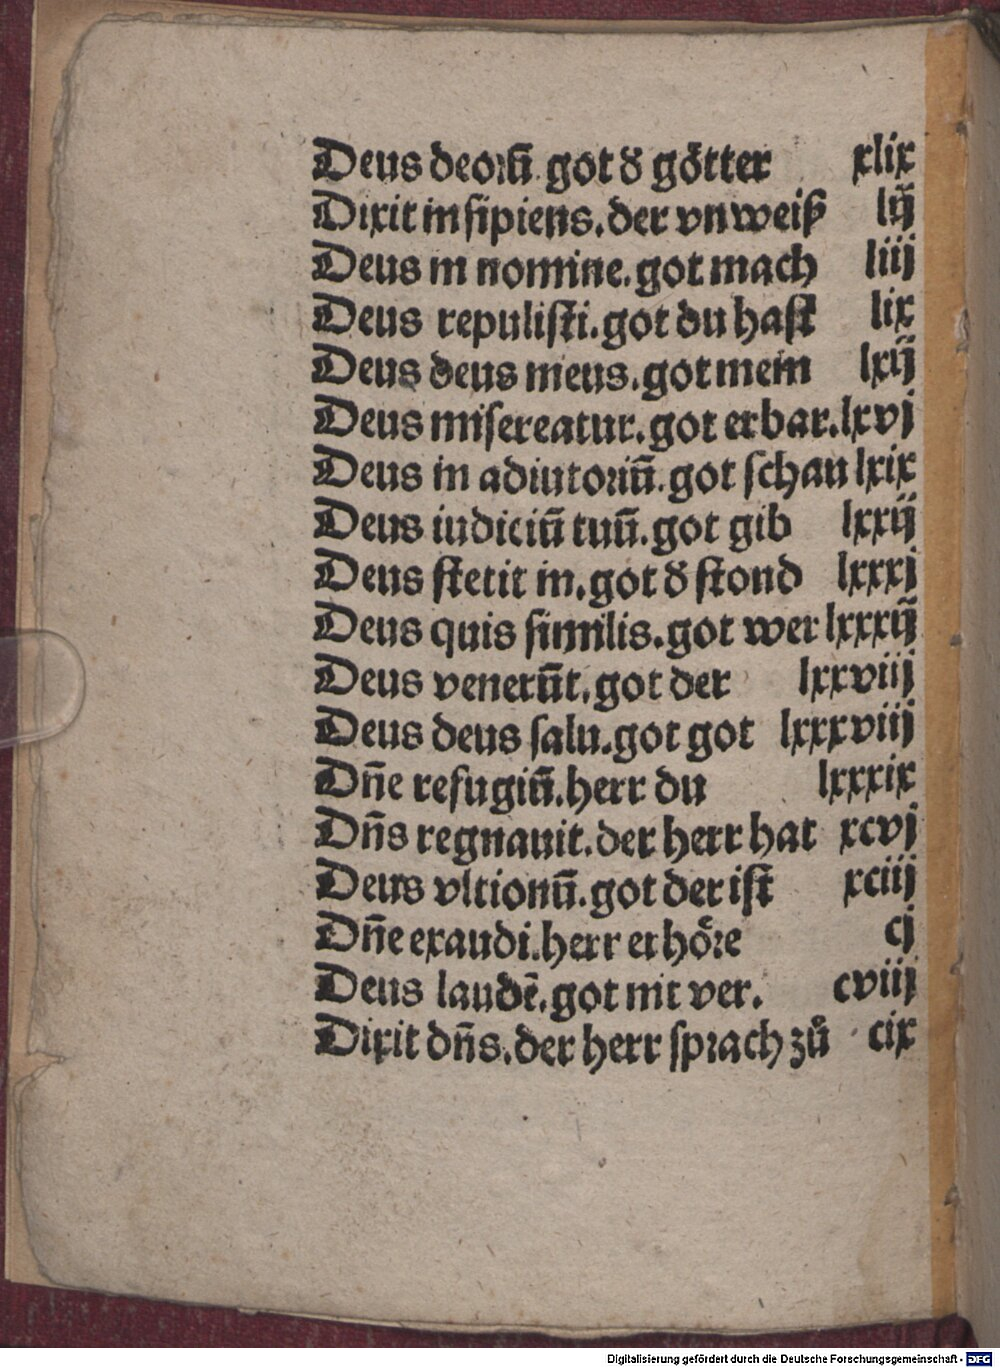 Deus deoꝛũ got đ goͤtter xlix
Dixit insipiens.der vnweiß lij
Deus in nomine.got mach liij
Deus repulisti.got du hast lix
Deus deus meus.got mein lxij
Deus misereatur.got erbar.lxvj
Deus in adiutoꝛiũ.got schau lxix
Deus iudiciũ tuũ.got gib lxxij
Deus stetit in.got đ stond lxxxj
Deus quis similis.got wer lxxxij
Deus venerũt.got der lxxviij
Deus deus salu.got got lxxxviij
Dñe refugiũ.herr du lxxxix
Dñs regnauit.der herr hat xcvj
Deus vltionũ.got der ist xciij
Dñe exaudi.herr erhoͤꝛe cj
Deus laudẽ.got nit ver. cviij
Dixit dñs.der herr spꝛach zů cix
Digitalisierung gefördert durch die Deutsche Forschungsgemeinschaft - DFG